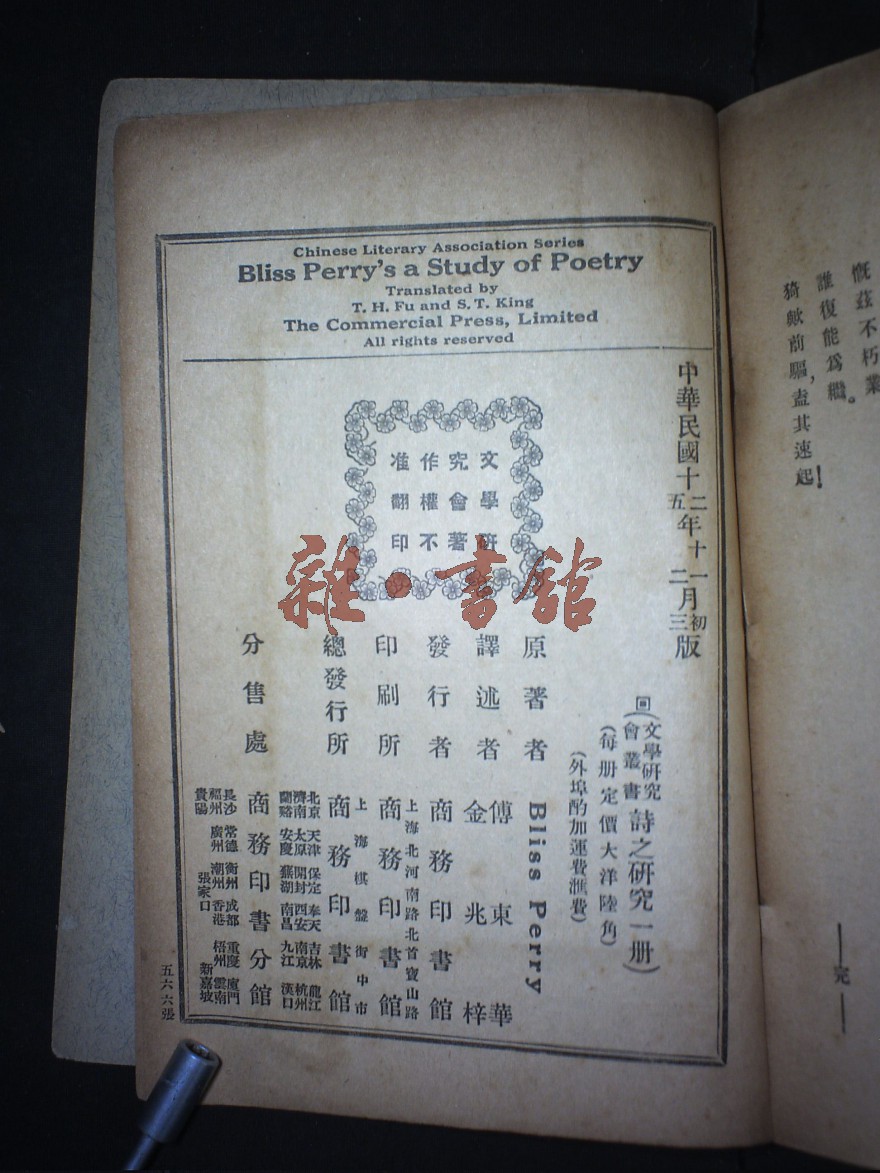 Chinese Literary Association Series
Bliss Perry's a Study of Poetry
Translated by
T. H. Fu and S. T. King
The Commercial Press, Limited
All rights reserved
中華民國十二年十一月初版
五 二三
文學研
究會著
作權不
准翻印
雜·書館
回(文學研究會叢書 詩之研究一册)
(每册定價大洋陸角)
(外埠酌加運費滙費)
原著者 Bliss Perry
譯述者 傅東華
金兆梓
發行者 商務印書館
印刷所 上海北河南路北首寶山路
商務印書館
總發行所 上海棋盤街中市
商務印書館
分售處 商務印書分館
北京 天津 保定 奉天 吉林 龍江
濟南 太原 開封 西安 南京 杭州
蘭谿 安慶 蕪湖 南昌 九江 漢口
長沙 常德 衡州 成都 重慶 廈門
福州 廣州 潮州 香港 梧州 雲南
貴陽 張家口 新嘉坡
五六六張
慨茲不朽業
誰復能爲繼。
猗歟前驅,盍其速起!
—完—